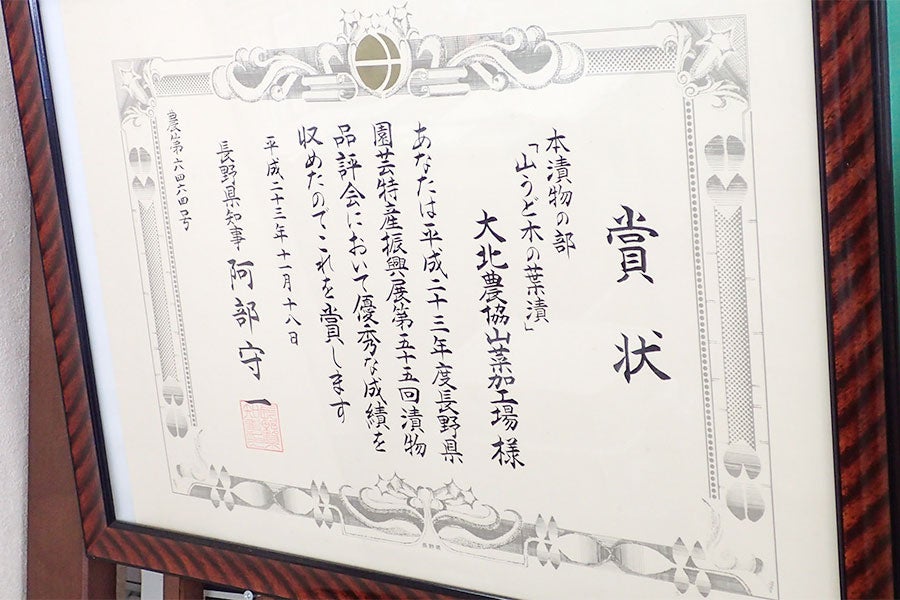 賞状
本漬物の部
「山うど木の葉漬」
大北農協山菜加工場 様
あなたは平成二十三年度長野県
園芸特産振興展第五十五回漬物
品評会において優秀な成績を
収めたのでこれを賞します
平成二十三年十一月十八日
長野県知事 阿部守一
農第六四六四号
長野県